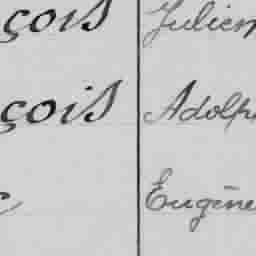 çois Julien
çois Adolph
Eugène